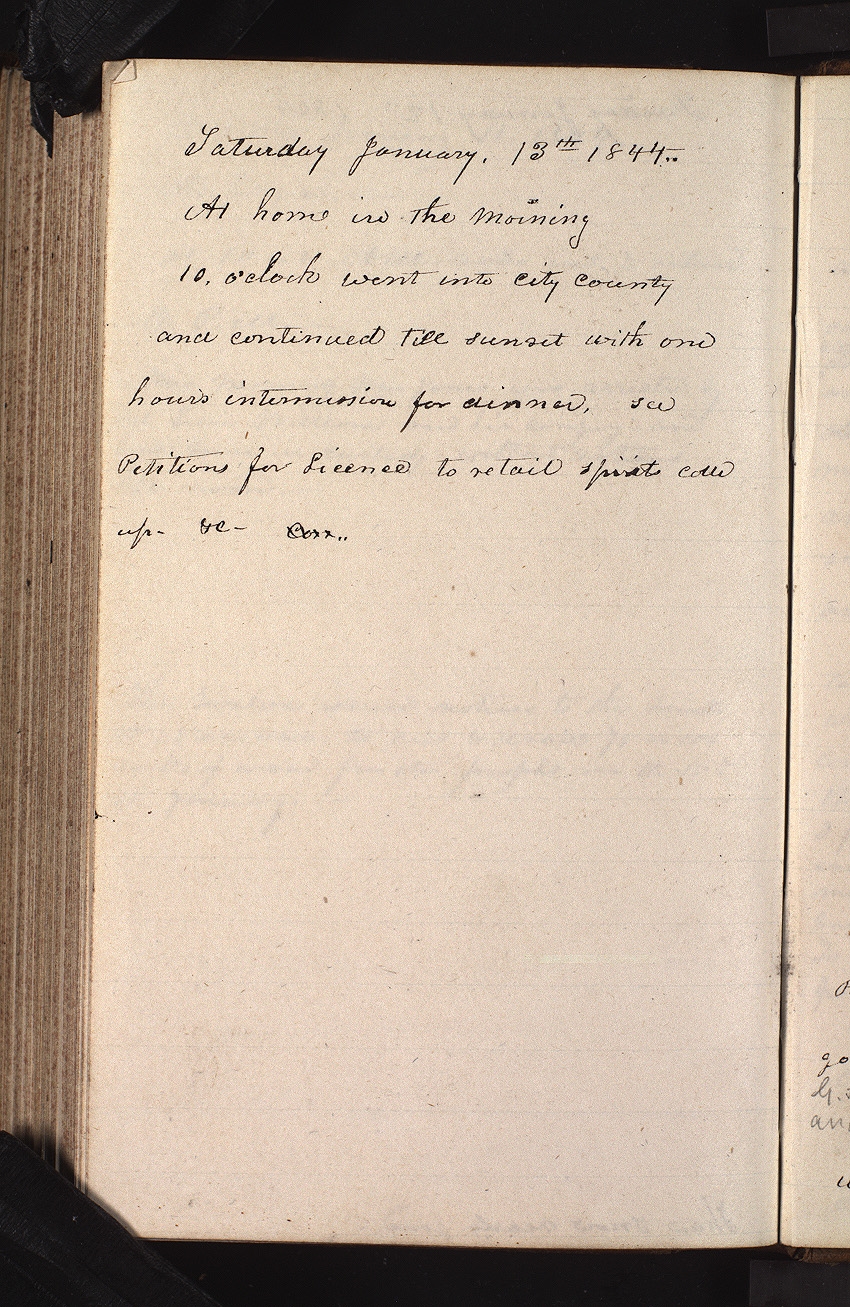 Saturday January. 13th 1844..
At home in the morning
10. o'clock went into city county
and continued till sunset with one
hours intermission for dinner.
Petitions for Licence to retail spirits
up- &c-
go
and